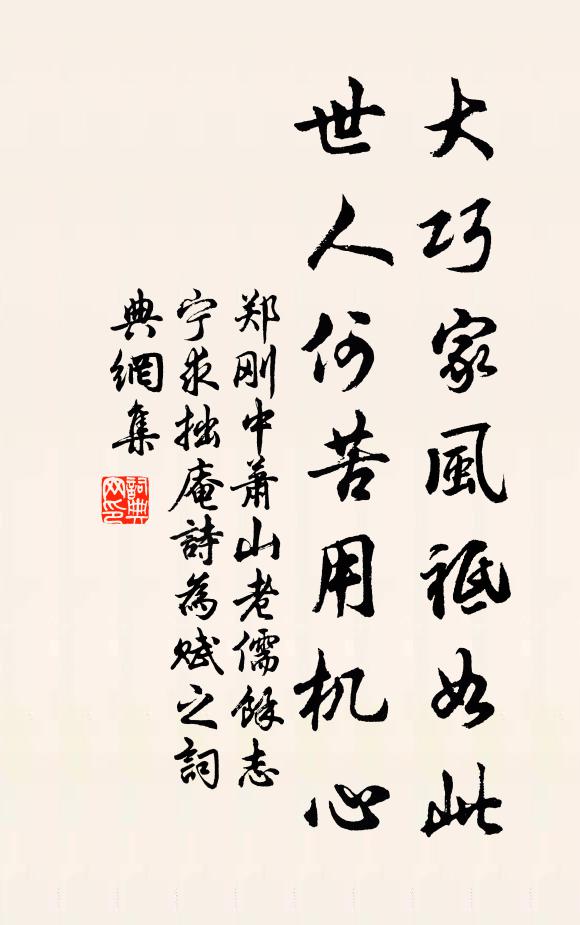 大巧家風祗如此
世人何苦用机心
郑刚中蕭山老儒餘志
宁求拙庵詩為赋之詞
典網集
詞典网印